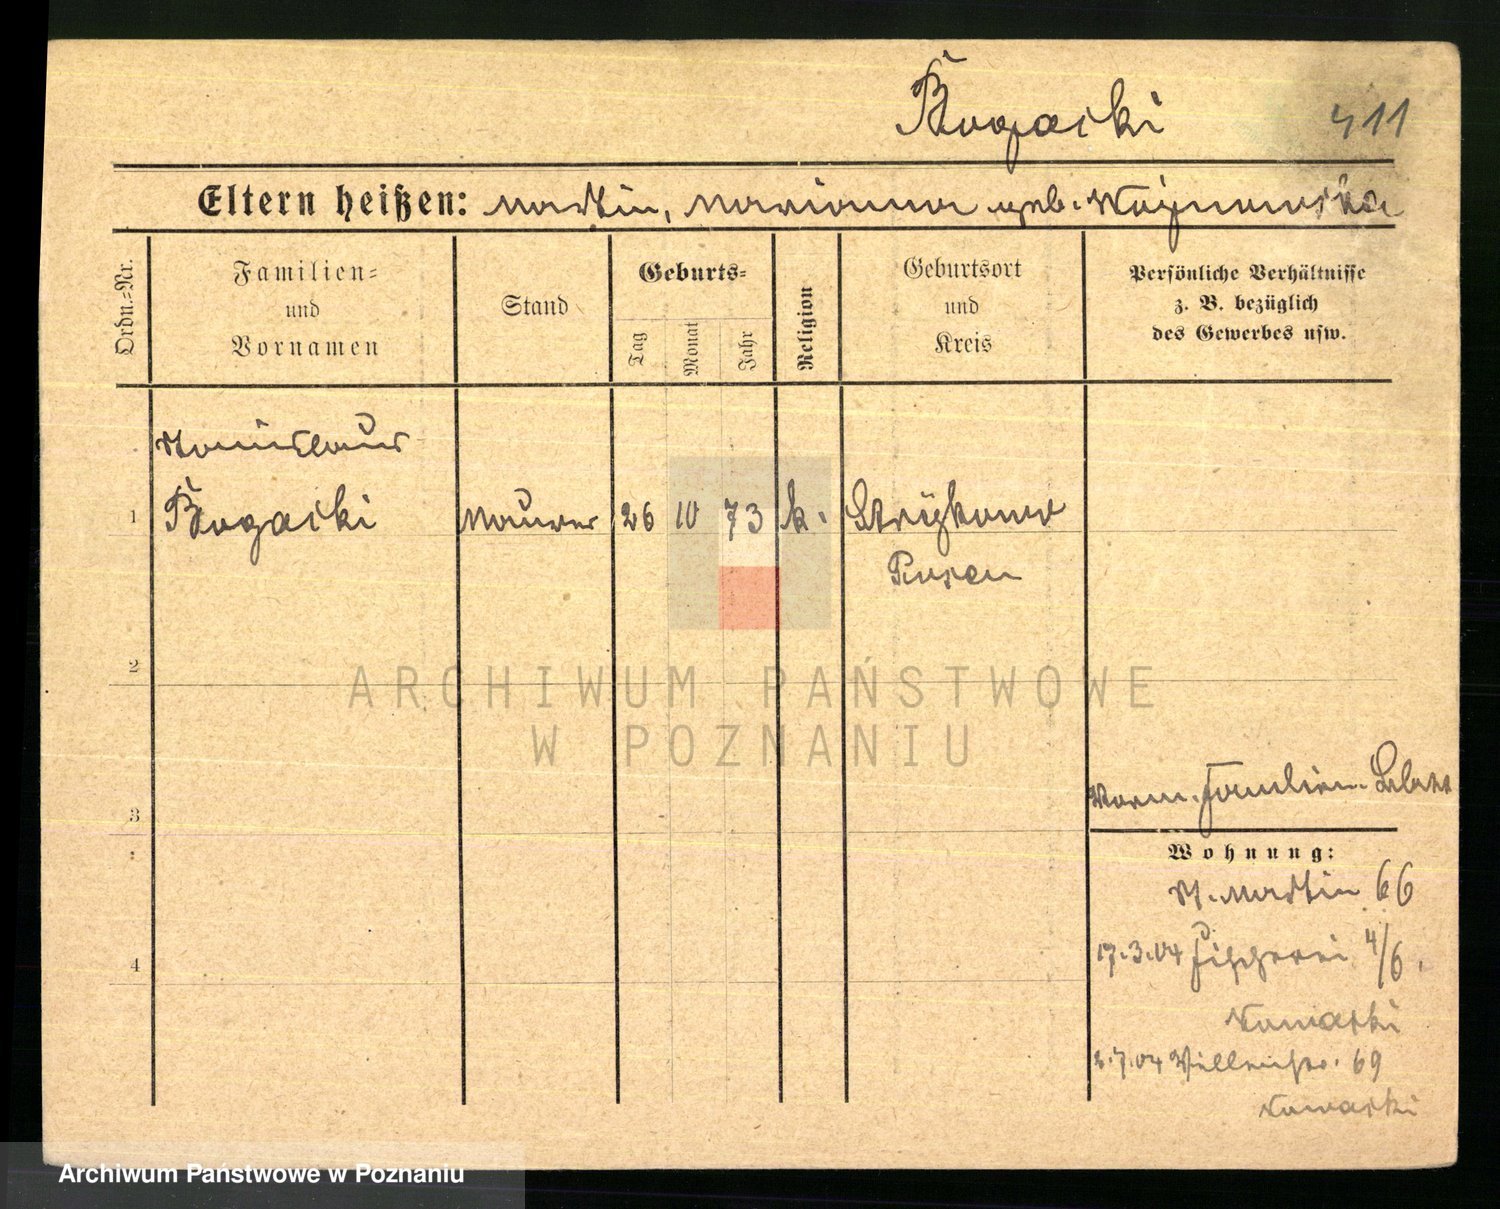 Bogacki 411
Eltern heißen: Martin, Marianna geb.
Ordn.=Nr.
Familien=
und
Vornamen
Stand
Geburts=
Tag
Monat
Jahr
Religion
Geburtsort
und
Kreis
Persönliche Verhältnisse
z. B. bezüglich
des Gewerbes usw.
Stanislaus
1 Bogacki Maurer 26 10 73 k.
Posen
2
ARCHIWUM PAŃSTWOWE
W POZNANIU
3
Wohnung:
St. Martin 66
4 17.3.04 Fischerei 4/6.
Nowacki
2.7.04 69
Nowacki
Archiwum Państwowe w Poznaniu